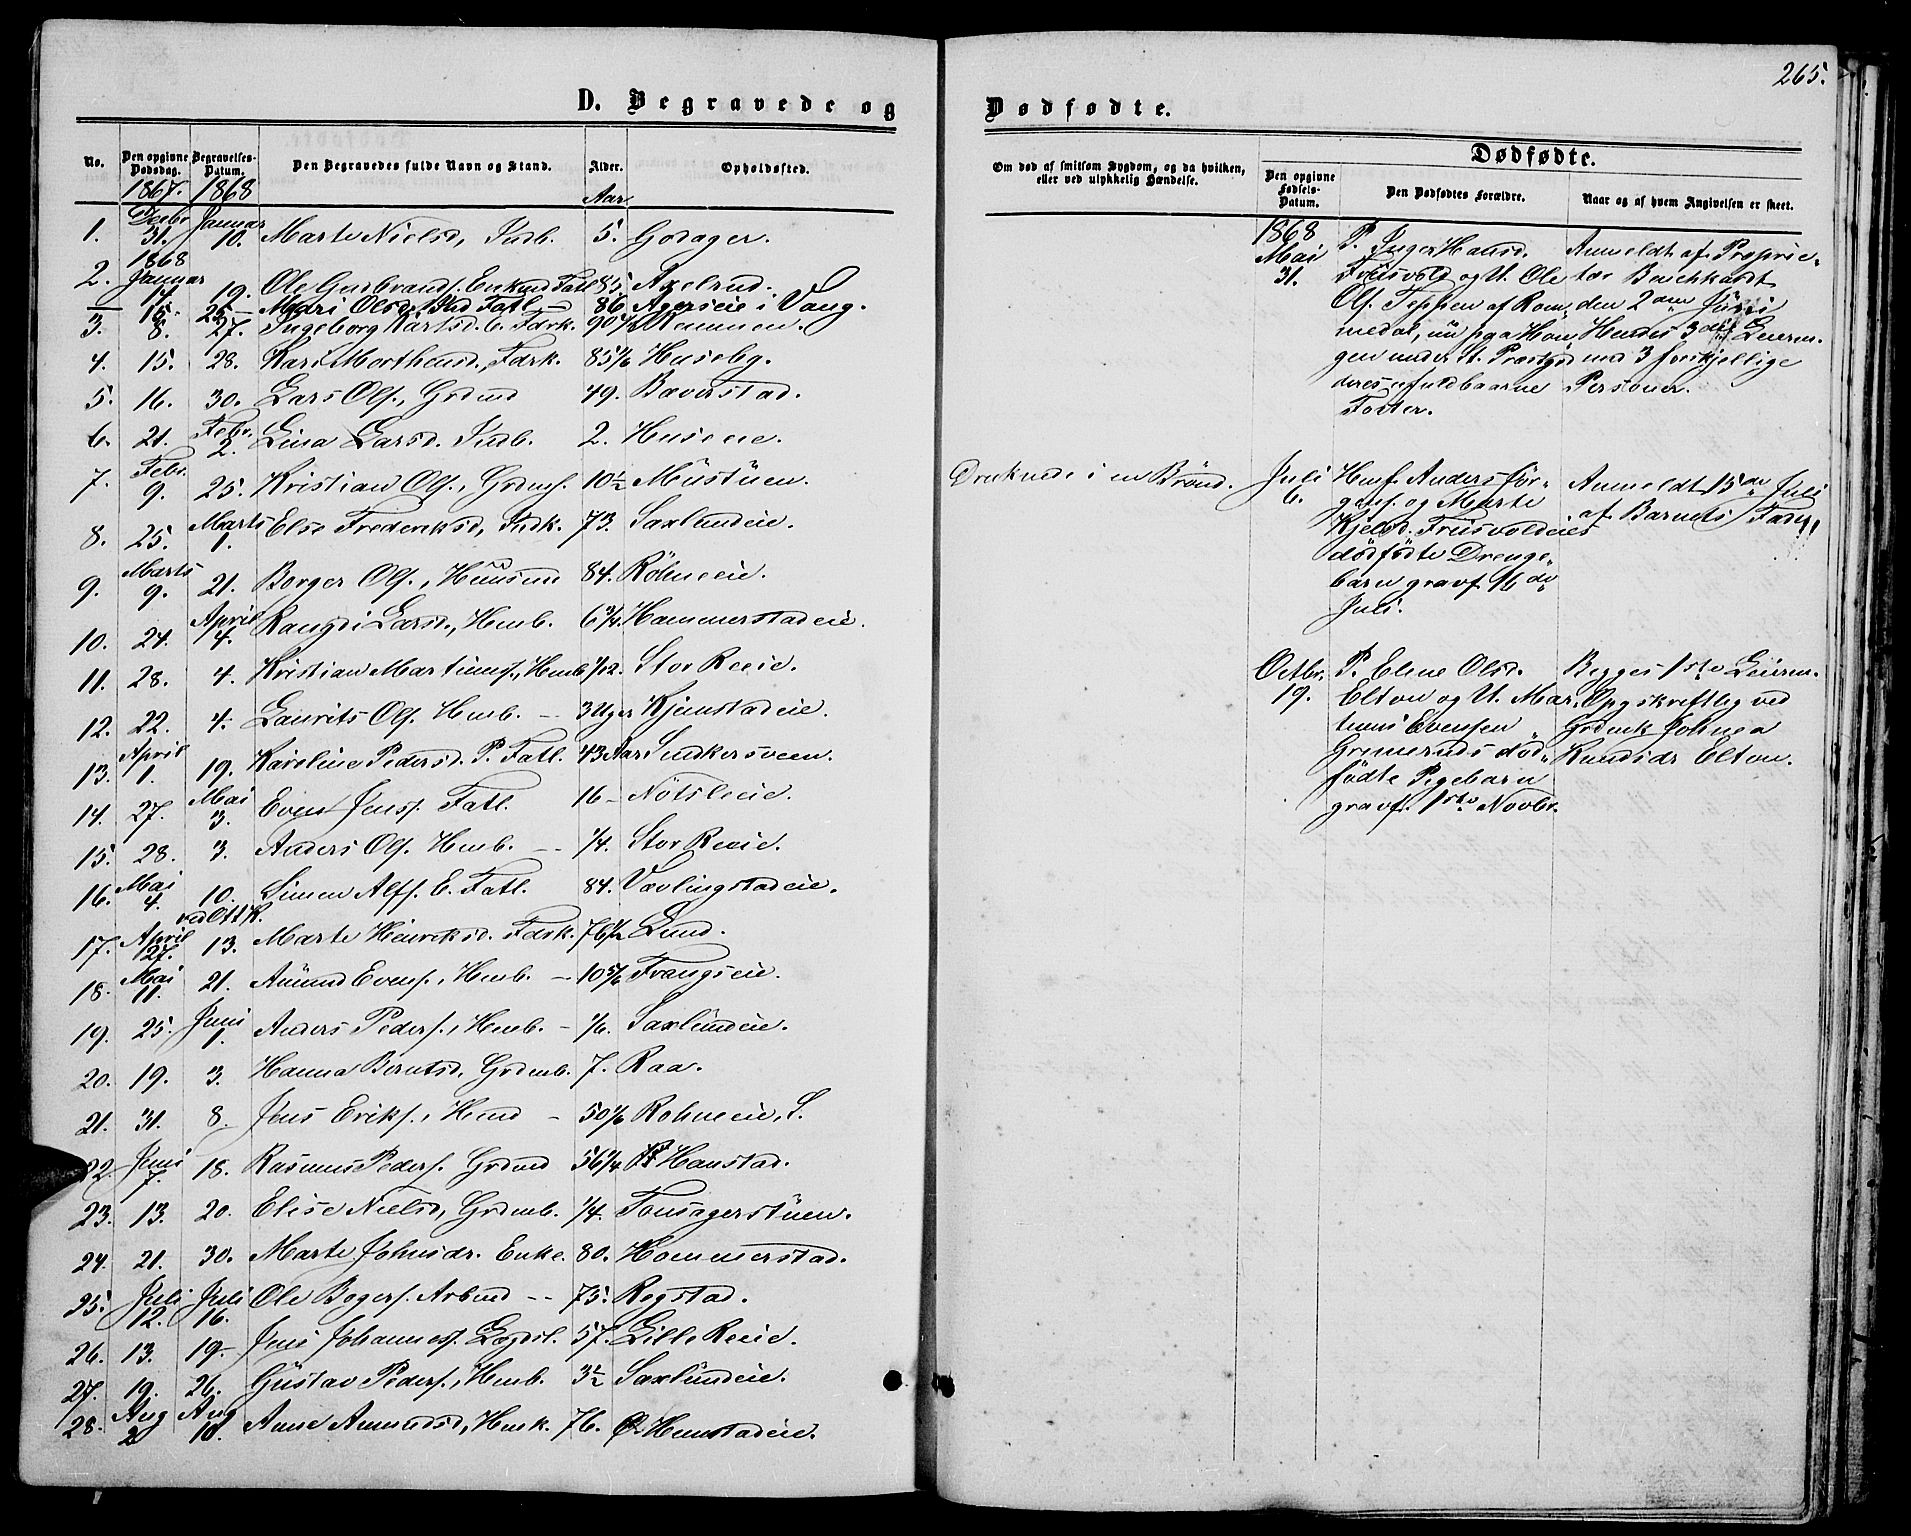 265.
D. Begravede og
Dødfødte.
No. Den opgivne Dødsdag. Begravelses-Datum. Den Begravedes fulde Navn og Stand. Alder. Opholdssted.
1867. 1868 Aar
1. Decbr 31. Januar 10. Marte Nielsd, Indb. 5. Godager.
1868
2. Januar 14. 19. Ole Gudbrands. Enkem Fatl 85. Axelrud.
15. 26 Mari Olsd. Fatl 86. Agerseie i Vang.
3. 8. 27. Ingeborg Larsd. E. Fdrk. 90 Rommen.
4. 15. 28. Kari Morthensd, Fdrk. 85 Huseby.
5. 16. 30. Lars Ols., Grdmd 49. Bæverstad.
6. 21. Febr. 2. Lina Larsd. Indb. 2. Huseeie.
7. Febr. 9. 25. Kristian Ols., Grdms. 10½ Mustuen.
8. 25. Marts 1. Else Frederiksd, Indk. 73. Saxlundeie.
9. Marts 9. 21. Borger Ols., Huusmd 84. Röhneeie.
10. 24. April 4. Rangdi Larsd., Hmb. 6¾ Hommerstadeie.
11. 28. 4. Kristian Martins., Hmb 1/12. Stor Reeie.
12. 22. 4. Laurits Ols. Hmb. 3 Uger Kjemstadeie.
13. April 1. 19. Karoline Pedersd. P. Fatl. 43 Aar Sinkersveen.
14. 27. Mai 3. Even Jens. Fatl. 16 Nötsleeie.
15. 28. 3. Anders Ols. Hmb. 1/4. Stor Reeie.
16. Mai 4. 10. Simen Alfs. E. Fatl. 84. Vævlingstadeie.
ved Ott K.
17. April 27. 13. Marte Henriksd. Fdrk. 76½ Lund.
18. Mai 11. 21. Amund Evens., Hmb. 10 5/6 Frangseie.
19. 25. Juni 1. Anders Peders., Hmb. 1/6. Saxlundeie.
20. 19. 3. Hanna Berntsd, Grdmb. 7. Raa.
21. 31. 8. Jens Eriks., Hmd 50 1/6 Rohneeie, S.
22. Juni 7. 18. Rasmus Peders. Grdmd 56¼ Honstad.
23. 13. 20. Elise Nielsd, Grdmb. 1/4. Tonsagerstuen.
24. 21. 30. Marte Johnsdr. Enke. 80. Hommerstad.
25. Juli 12. Juli 16. Ole Bogers. Arbmd 75. Rogstad.
26. 13. 19. Jens Johannes. Lægdsl. 57. Lille Reeie.
27. 19. 26. Gustav Peders., Hmb. 3½ Saxlundeie.
28. Aug 2 Aug 10. Anne Amundsd, Hmk. 76. Ø Hemstadeie.
Om død af smitsom Sygdom, og da hvilken, eller ved ulykkelig Hændelse.
Druknede i en Brønd.
Dødfødte.
Den opgivne Fødsels-Datum. Den Dødfødtes Forældre. Naar og af hvem Angivelsen er skeet.
1868
Mai 31.
P. Inger Hansd.
Friisvold og U. Ole
Ols. Teppen af Rom
medal, nu paa Hov
gen under St. Præstgd
deres ufuldbaarne
Foster.
Anmeldt af Proprie-
tær Buchhardt
den 2den Juni
Hendes 3die Leierm.
med 3 forskjellige
Personer.
Juli 6.
Hmf. Anders Jør-
gens. og Marte
Kjelsd. Friisvoldeies
dødfødte Drenge-
barn gravf. 16de
Juli.
Anmeldt 15de Juli
af Barnets Fader
Octbr. 19.
P. Elene Olsd.
Elton og U. Mar-
tinus Evensen
Grimeruds død-
fødte Pigebarn
gravf. 1ste Novbr.
Begges 1ste Leierm.
Opg skriftlig ved
Grdmk Johnea
Knudsdr Elton.